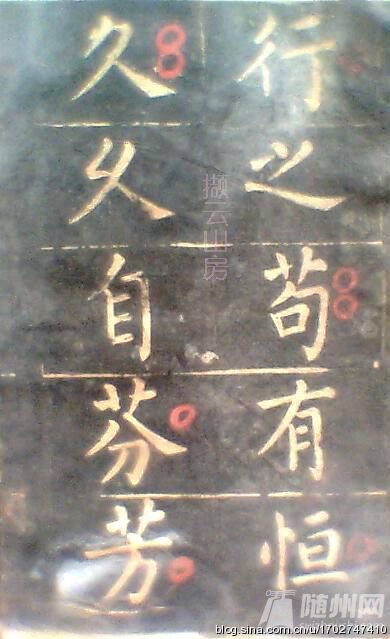 行之苟有恒
久久自芬芳
撷云山房
随州网
blog.sina.com.cn/u/1702747410